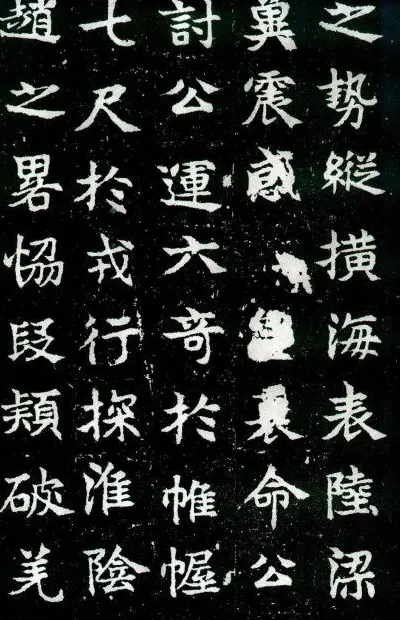 之势縱橫海表陸梁
兾震惑衷命公
討公運六奇於帷幄
七尺於戎行探淮陰
趙之畧恊段熲破羌